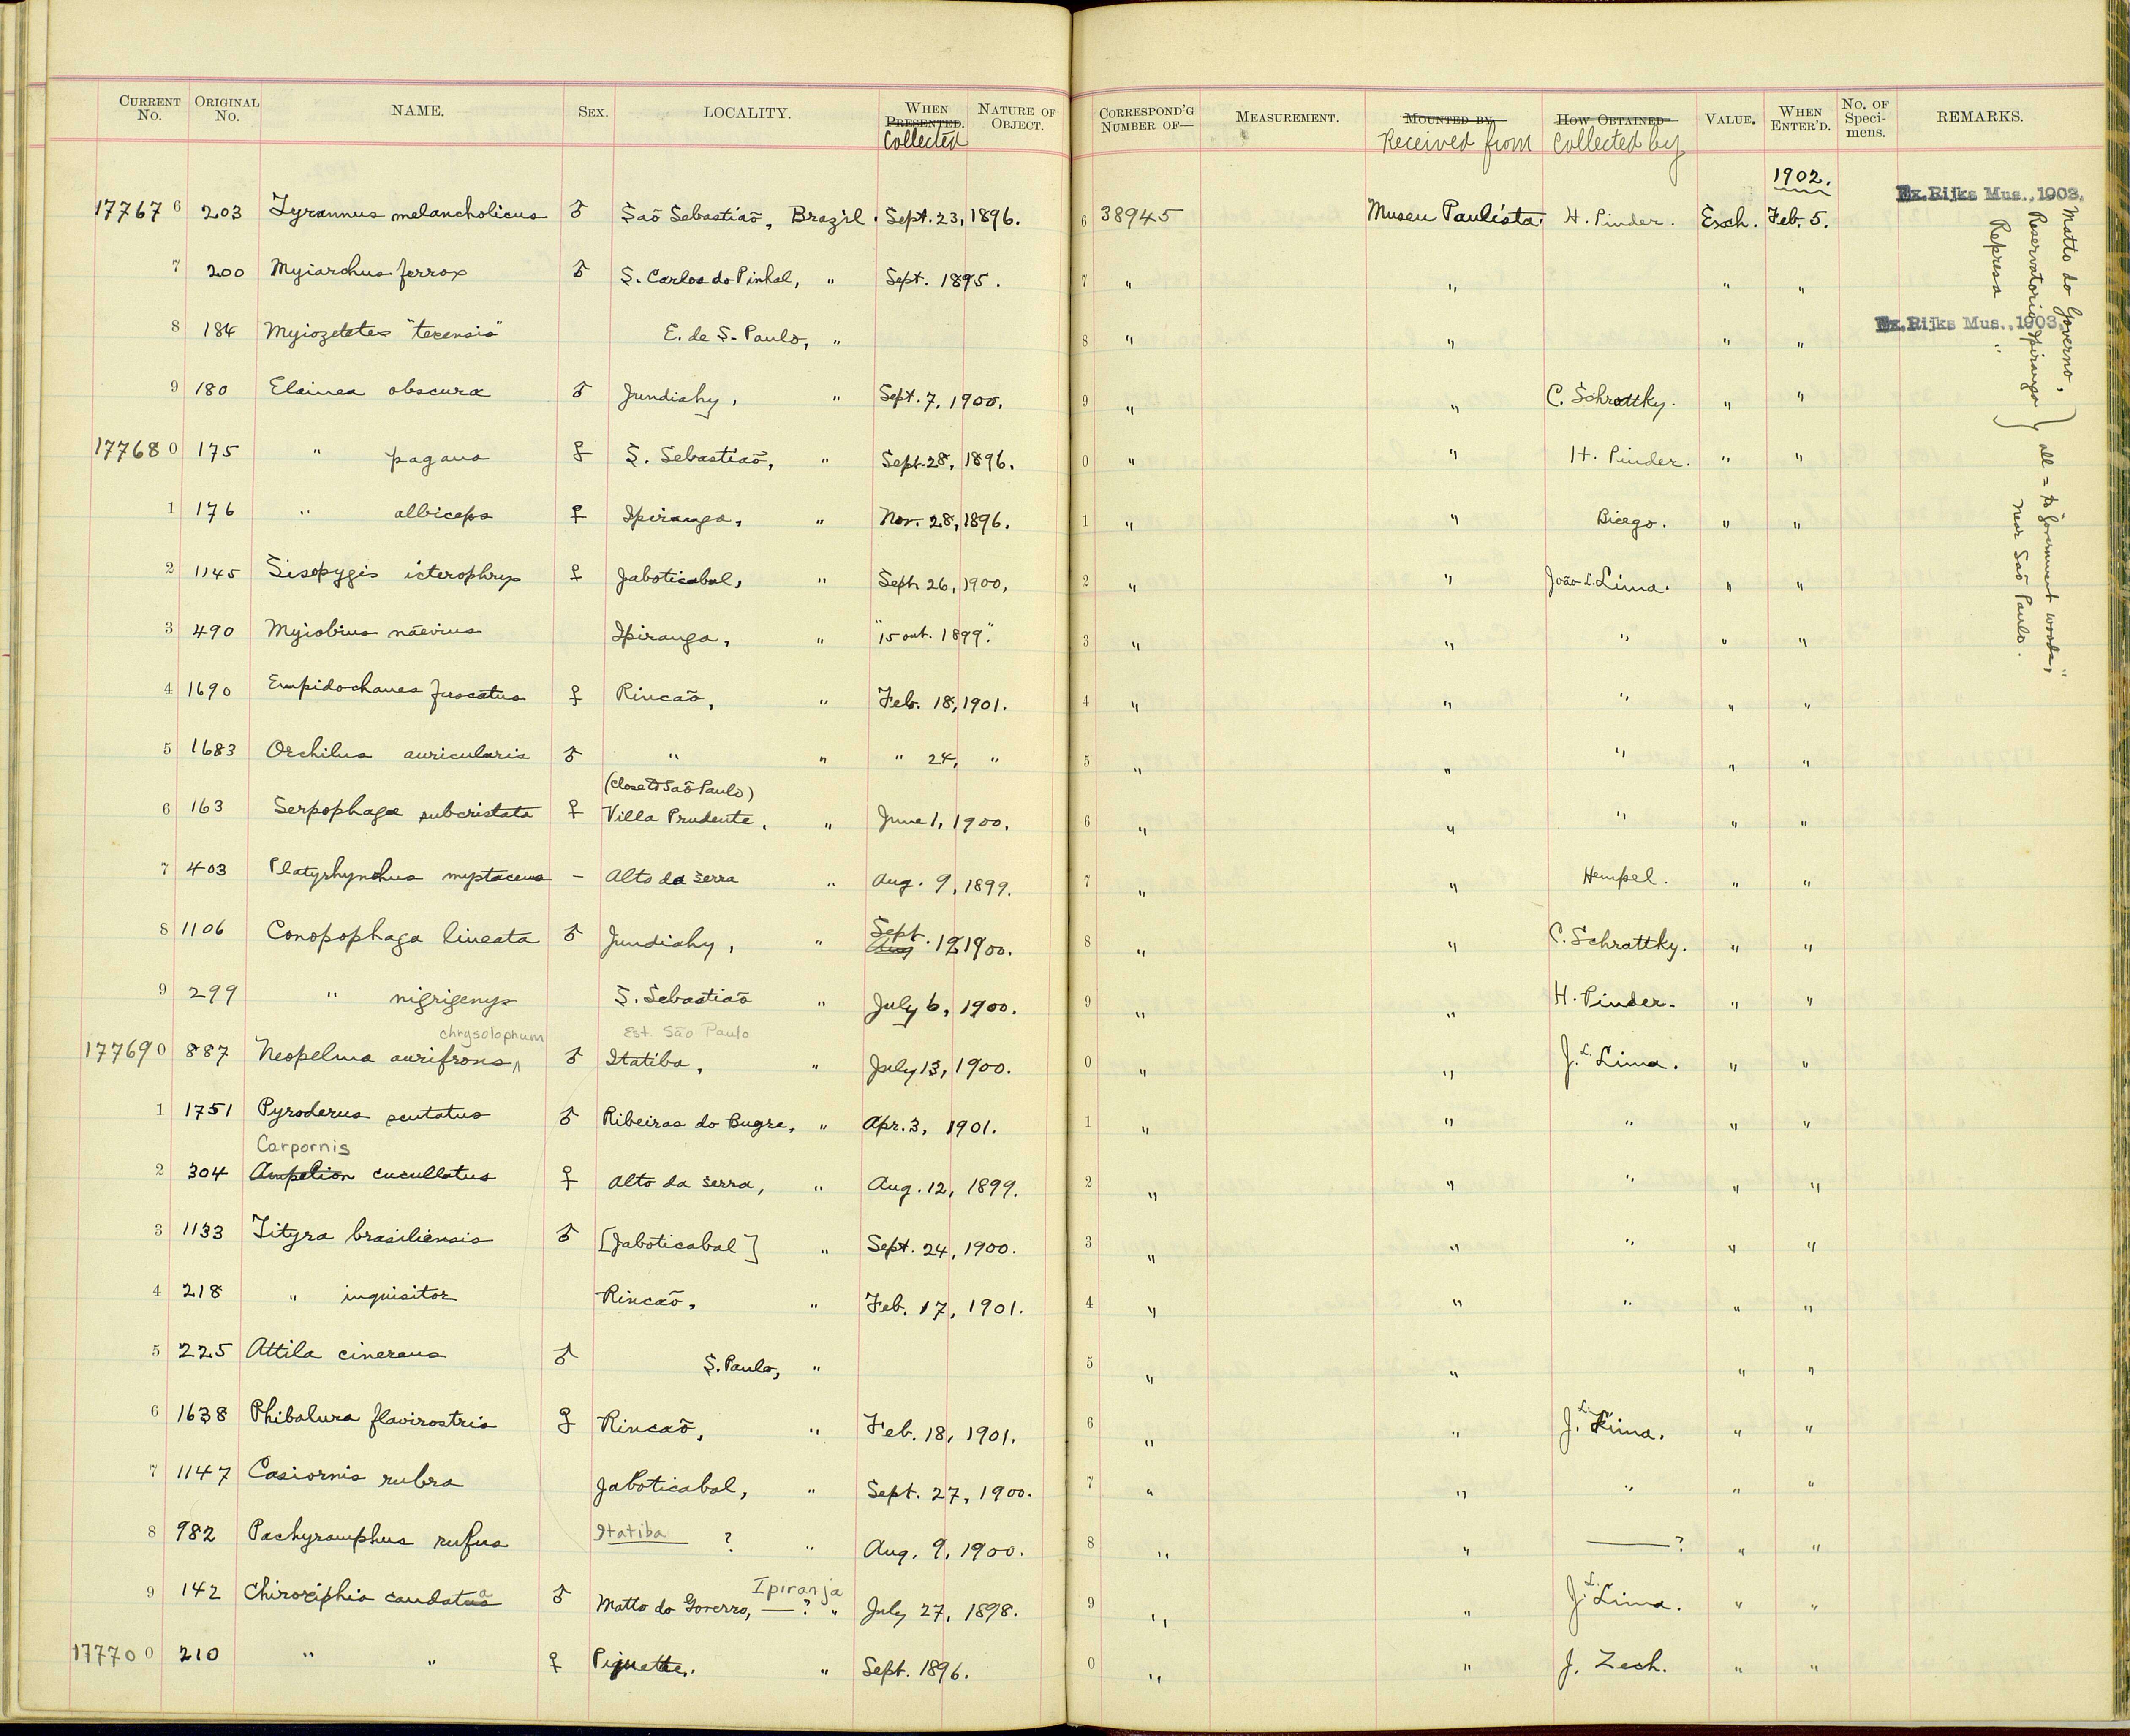 CURRENT No. ORIGINAL No. NAME. SEX. LOCALITY. WHEN PRESENTED. Collected NATURE OF OBJECT. CORRESPOND'G NUMBER OF— MEASUREMENT. MOUNTED BY Received from HOW OBTAINED Collected by VALUE. WHEN ENTER'D. No. OF Speci-mens. REMARKS.
1902.
177676 203 Tyrannus melancholicus ♂ Saõ Sebastiaõ, Brazil. Sept. 23, 1896. 6 38945 Museu Paulista. H. Pinder. Exch. Feb. 5. Ex. Rijks Mus., 1903.
7 200 Myiarchus ferrox ♂ S. Carlos do Pinhal, " Sept. 1895. 7 " " " "
8 184 Myiozetetes "texensis" E. de S. Paulo, " 8 " " " " Ex. Rijks Mus., 1903.
9 180 Elainea obscura ♂ Jundiahy, " Sept. 7, 1900. 9 " " C. Schrottky. " "
177680 175 " pagana ♀ S. Sebastiaõ, " Sept. 28, 1896. 0 " " H. Pinder. " "
1 176 " albiceps ♀ Ipiranga, " Nov. 28, 1896. 1 " " Bicego. " "
2 1145 Sisopygis icterophrys ♀ Jaboticabal, " Sept. 26, 1900, 2 " " João L. Lima. " "
3 490 Myiobius naevius Ipiranga, " "15 out. 1899." 3 " " " " "
4 1690 Empidochanes fuscatus ♀ Rincaõ, " Feb. 18, 1901. 4 " " " " "
5 1683 Orchilus auricularis ♂ " " " 24, " 5 " " " " "
(close to Saõ Paulo)
6 163 Serpophaga subcristata ♀ Villa Prudente, " June 1, 1900. 6 " " " " "
7 403 Platyrhynchus mystaceus – Alto da Serra " Aug. 9, 1899. 7 " " Hempel. " "
8 1106 Conopophaga lineata ♂ Jundiahy, " Sept. Aug. 12 1900. 8 " " C. Schrattky. " "
9 299 " nigrigenys S. Sebastiaõ " July 6, 1900. 9 " " H. Pinder. " "
chrysolophum Est. São Paulo
177690 887 Neopelma aurifrons ♂ Itatiba, " July 13, 1900. 0 " " J. L. Lima. " "
1 1751 Pyroderus scutatus ♂ Ribeiras do Bugre, " Apr. 3, 1901. 1 " " " " "
Carpornis
2 304 Ampelion cucullatus ♀ Alto da Serra, " Aug. 12, 1899. 2 " " " " "
3 1133 Tityra brasiliensis ♂ [Jaboticabal] " Sept. 24, 1900. 3 " " " " "
4 218 " inquisitor Rincaõ, " Feb. 17, 1901. 4 " " " " "
5 225 Attila cinereus ♂ S. Paulo, " 5 " " " "
6 1638 Phibalura flavirostris ♀ Rincaõ, " Feb. 18, 1901. 6 " " J. L. Lima. " "
7 1147 Casiornis rubra Jaboticabal, " Sept. 27, 1900. 7 " " " " "
8 982 Pachyramphus rufus Itatiba ? " Aug. 9, 1900. 8 " " ——? " "
Ipiranja
9 142 Chiroxiphia caudata ♂ Matto do Goverro, —? " July 27, 1898. 9 " " J. L. Lima. " "
177700 210 " " ♀ Piquette, " Sept. 1896. 0 " " J. Zech. " "
Matto do Governo,
Reservatorio, Ipiranga
Represa "
} all = to "Government woods,"
near Saõ Paulo.